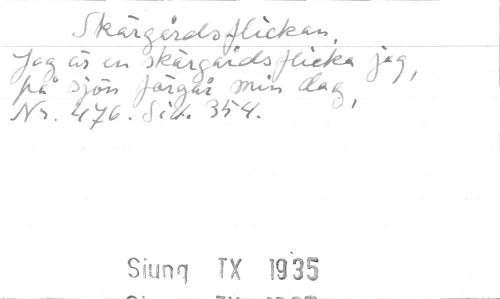 Skärgårdsflickan.
Jag är en skärgårdsflicka jag,
på sjön förgår min dag,
Nr. 476. Sid. 354.
Siung TX 1935